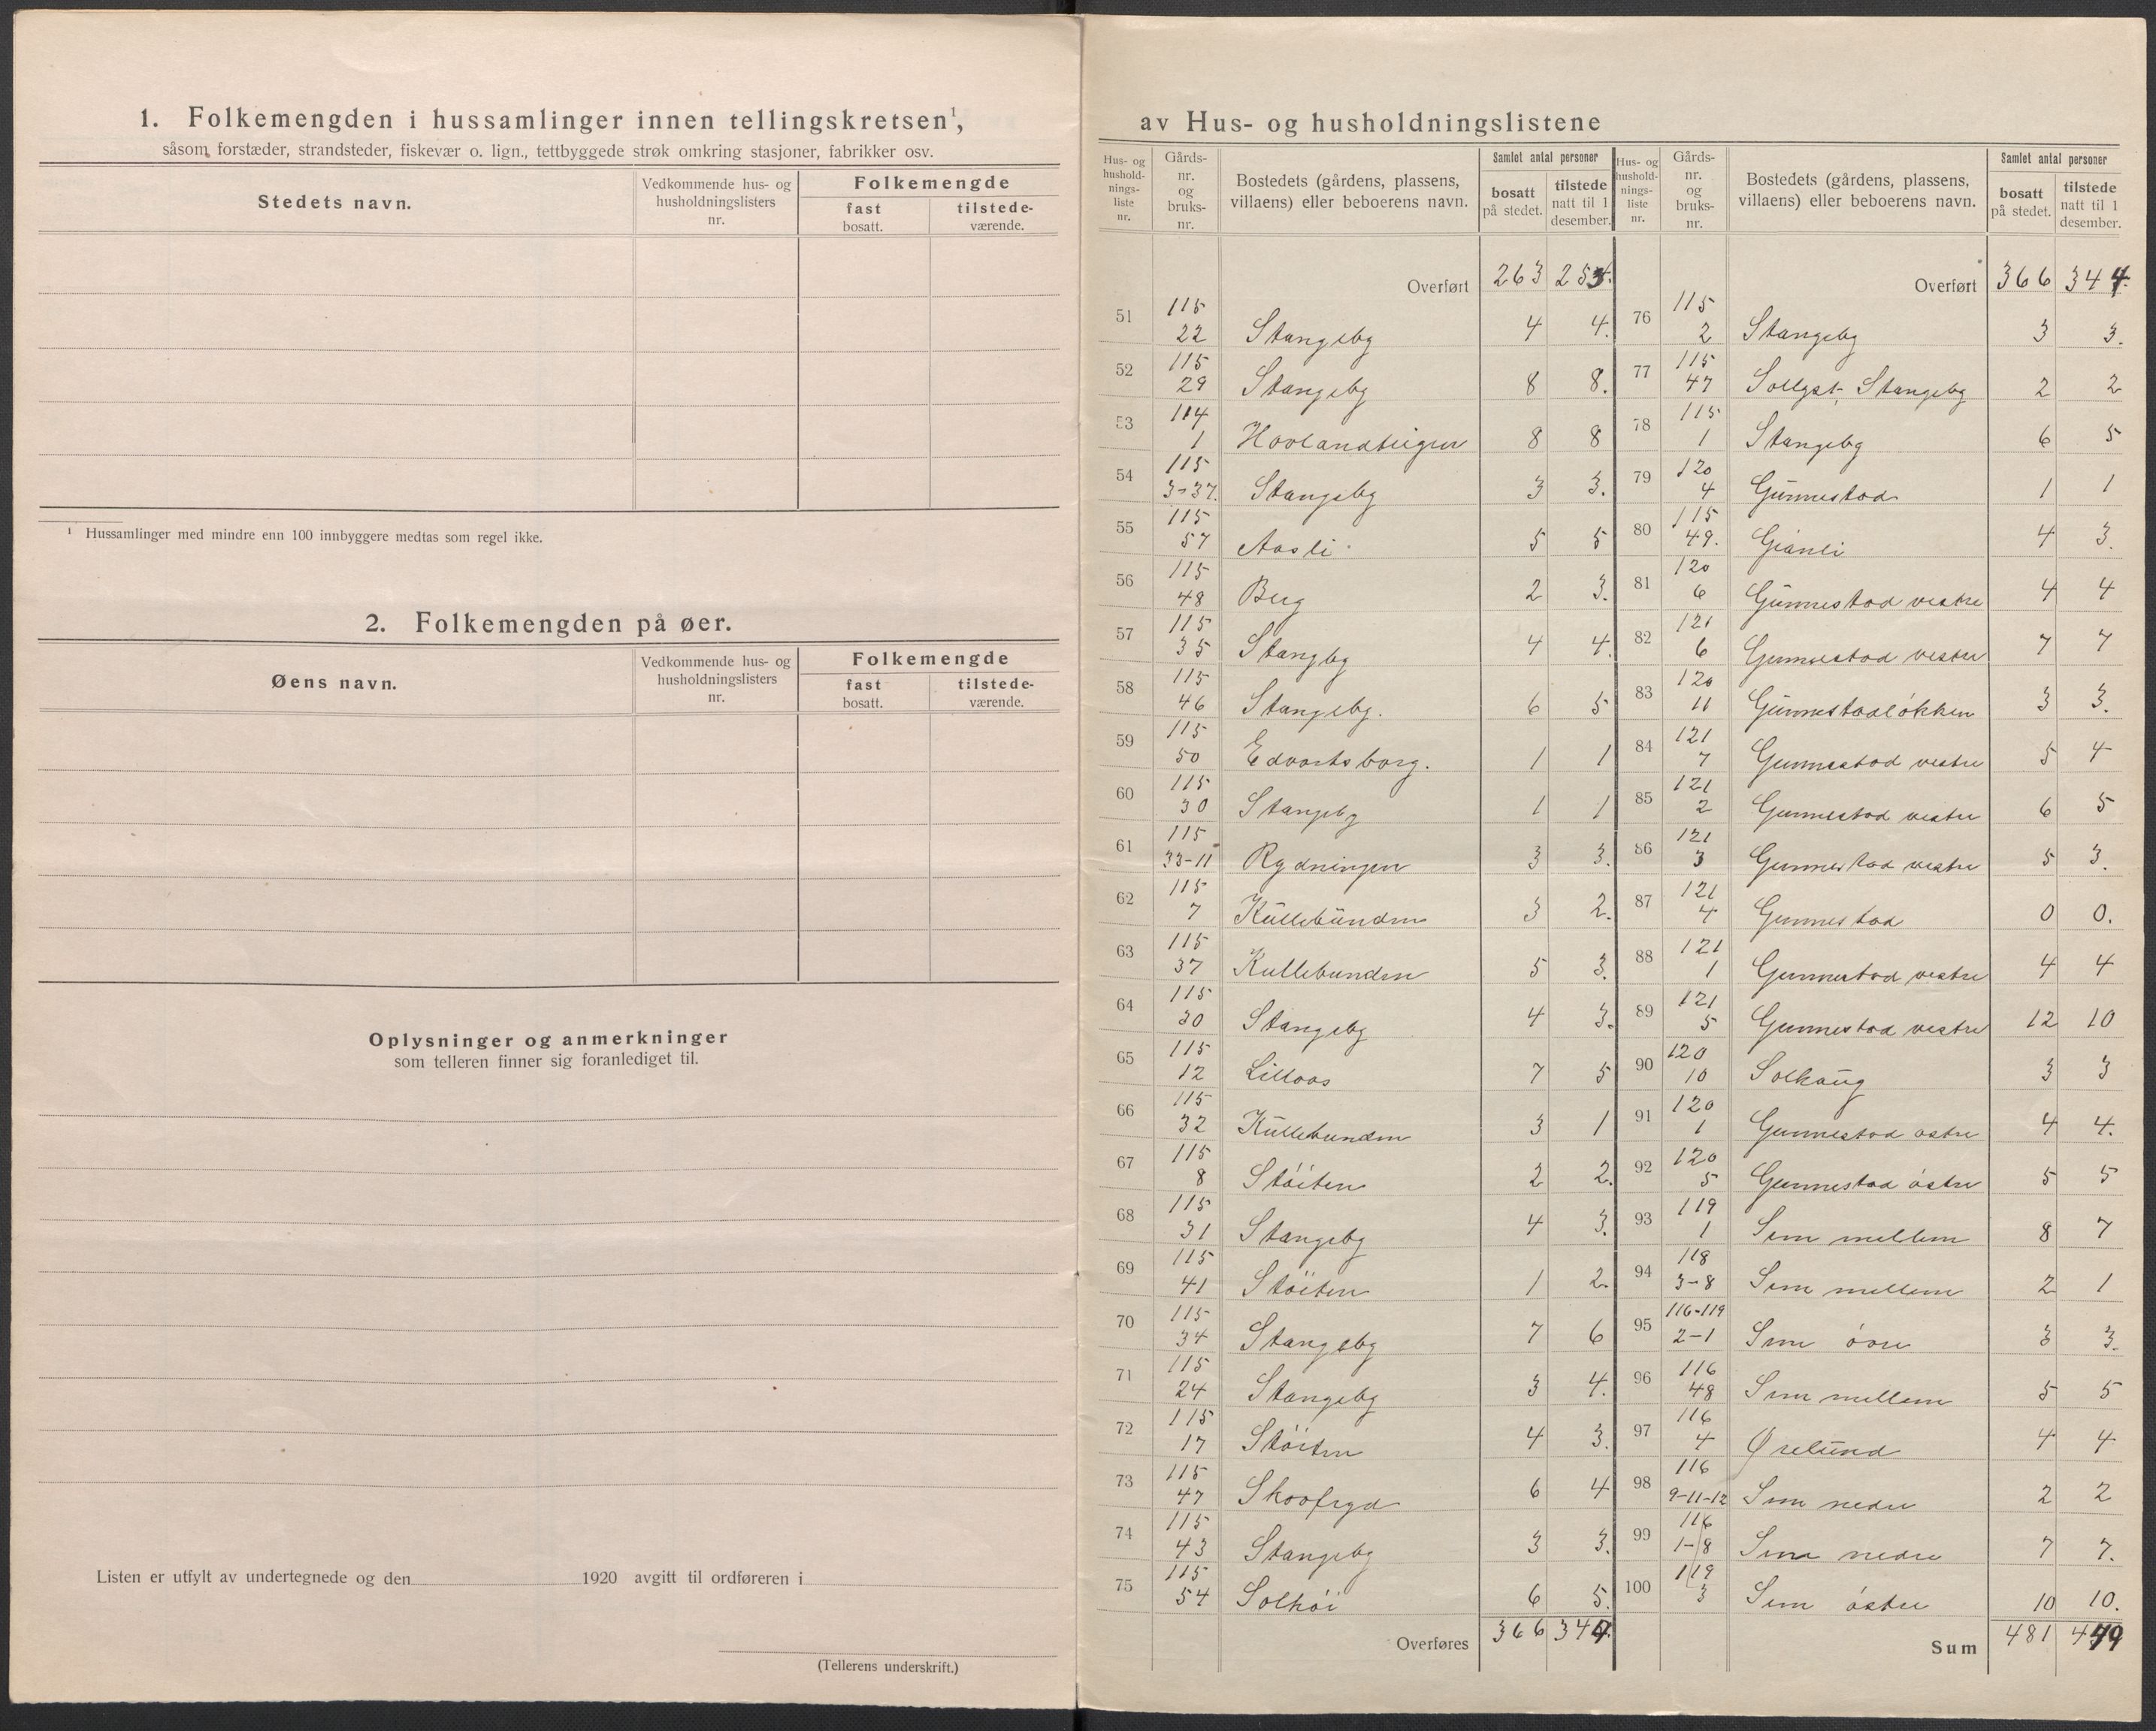 1. Folkemengden i hussamlinger innen tellingskretsen¹,
såsom forstæder, strandsteder, fiskevær o. lign., tettbyggede strøk omkring stasjoner, fabrikker osv.
Stedets navn.
Vedkommende hus- og husholdningslisters nr.
Folkemengde
fast bosatt.
tilstede- værende.
¹ Hussamlinger med mindre enn 100 innbyggere medtas som regel ikke.
2. Folkemengden på øer.
Øens navn.
Vedkommende hus- og husholdningslisters nr.
Folkemengde
fast bosatt.
tilstede- værende.
Oplysninger og anmerkninger
som telleren finner sig foranlediget til.
Listen er utfylt av undertegnede og den 1920 avgitt til ordføreren i
(Tellerens underskrift.)
av Hus- og husholdningslistene
Hus- og hushold- nings- liste nr.
Gårds- nr. og bruks- nr.
Bostedets (gårdens, plassens, villaens) eller beboerens navn.
Samlet antal personer
bosatt på stedet.
tilstede natt til 1 desember.
Overført 263
51 115 22 Stangeby 4 4.
52 115 29 Stangeby 8 8.
53 114 1 Hovlandteigen 8 8
54 115 3-37. Stangeby 3 3.
55 115 57 Aasli 5 5
56 115 48 Berg 2 3.
57 115 35 Stangby 4 4.
58 115 46 Stangeby. 6 5
59 115 50 Edvartsborg. 1 1
60 115 30 Stangeby 1 1
61 115 33-11 Rydningen 3 3.
62 115 7 Kullebunden 3 2.
63 115 37 Kullebunden 5 3.
64 115 30 Stangeby 4 3.
65 115 12 Lilloas 7 5
66 115 32 Kullebunden 3 1
67 115 8 Stöiten 2 2.
68 115 31 Stangeby 4 3.
69 115 41 Stöiten 1 2.
70 115 34 Stangeby 7 6
71 115 24 Stangeby 3 4.
72 115 17 Stöiten 4 3.
73 115 47 Skovfryd 6 4
74 115 43 Stangeby 3 3.
75 115 54 Solhöi 6 5.
Overføres 366 344.
Hus- og hushold- nings- liste nr.
Gårds- nr. og bruks- nr.
Bostedets (gårdens, plassens, villaens) eller beboerens navn.
Samlet antal personer
bosatt på stedet.
tilstede natt til 1 desember.
Overført 366 344.
76 115 2 Stangeby 3 3.
77 115 47 Stangeby 2 2
78 115 1 Stangeby 6 5
79 120 4 Gunnestad 1 1
80 115 49. Granli 4 3.
81 120 6 Gunnestad vestre 4 4
82 121 6 Gunnestad vestre 7 7
83 120 11 Gunnestadlökken 3 3.
84 121 7 Gunnestad vestre 5 4
85 121 2 Gunnestad vestre 6 5
86 121 3 Gunnestad vestre 5 3.
87 121 4 Gunnestad 0 0.
88 121 1 Gunnestad vestre 4 4
89 121 5 Gunnestad vestre 12 10
90 120 10 Solhaug 3 3
91 120 1 Gunnestad östre 4 4.
92 120 5 Gunnestad östre 5 5
93 119 1 Sem mellem 8 7
94 118 3-8 Sem mellem 2 1
95 116-119 2-1 Sem övre 3 3.
96 116 48 Sem mellem 5 5
97 116 4 Ørelund 4 4
98 116 9-11-12 Sem nedre 2 2
99 116 1-8 Sem nedre 7 7.
100 119 3 Sem östre 10 10.
Sum 481 449